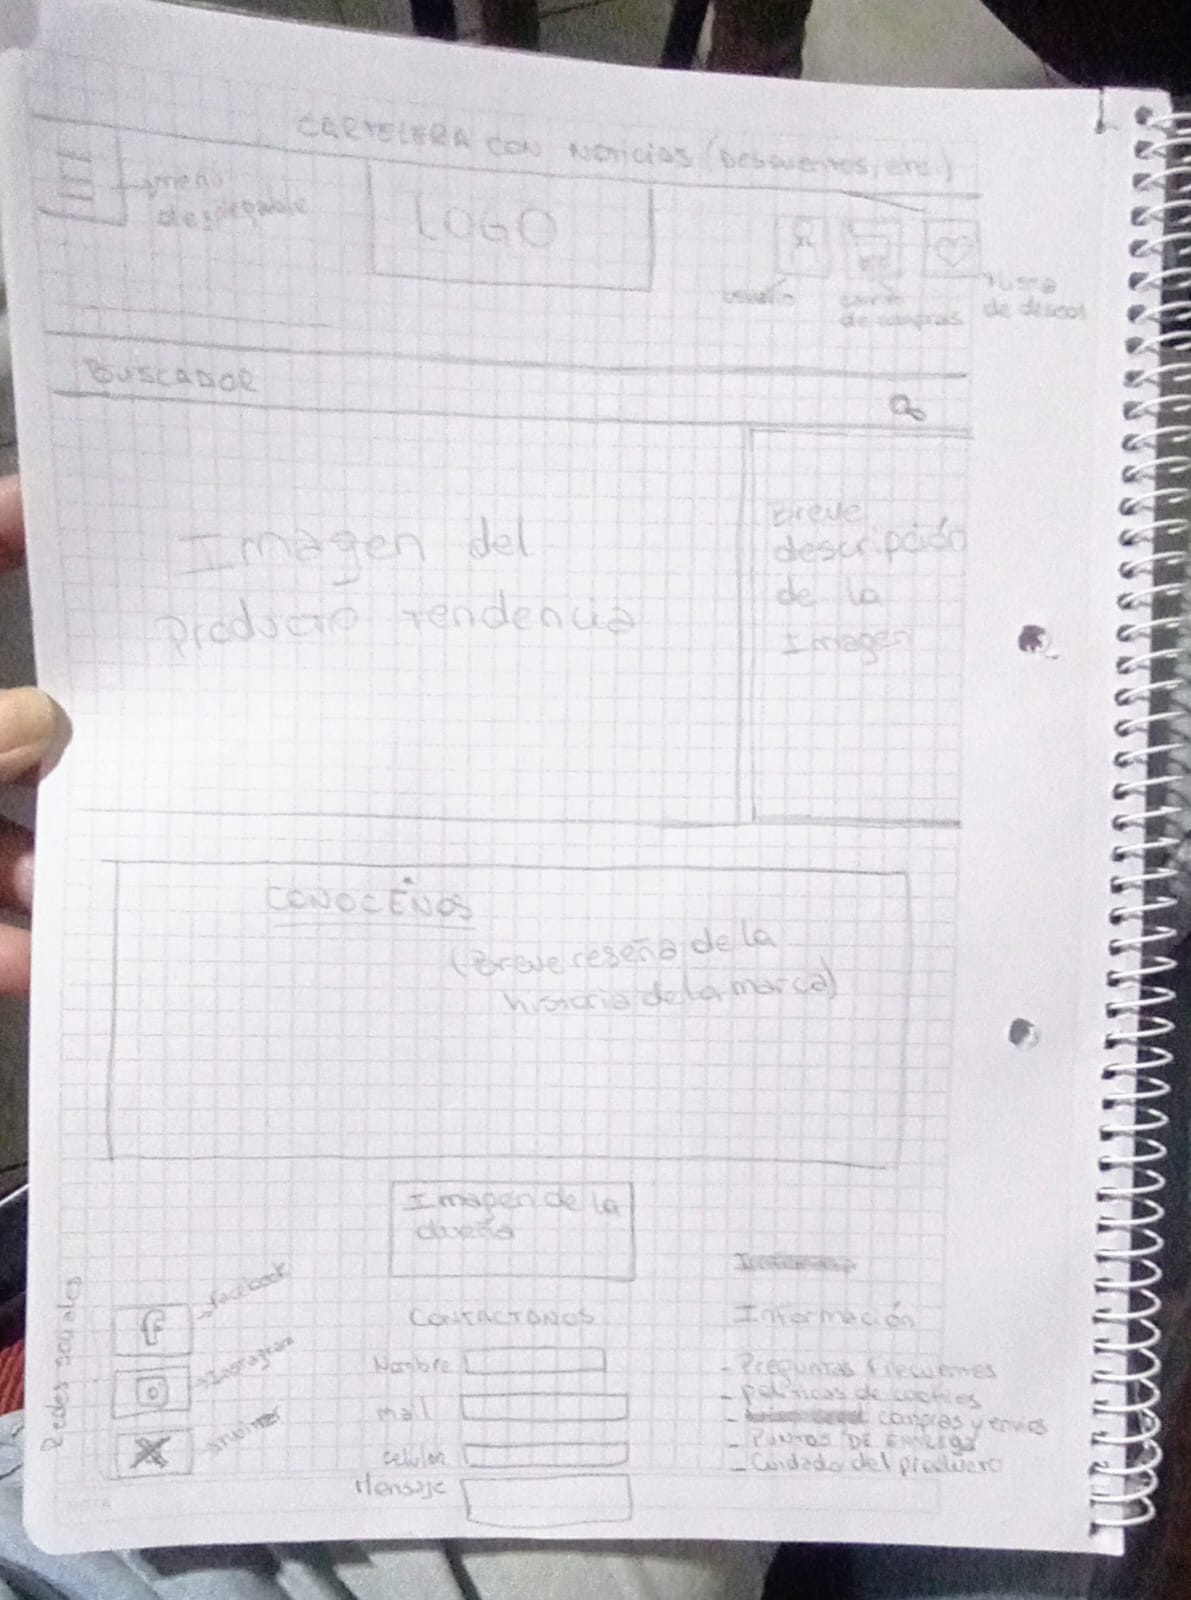 CARTELERA CON NOTICIAS (Descuentos, etc.)
menú
desplegable
LOGO
usuario
carro
de compras
lista
de deseos
BUSCADOR
Imagen del
producto tendencia
Breve
descripción
de la
Imagen
CONOCENOS
(Breve reseña de la
historia de la marca)
Imagen de la
dueña
Redes sociales
facebook
Instagram
CONTACTANOS
Nombre
mail
celular
Mensaje
Información
- Preguntas frecuentes
- políticas de cookies
- compras y envios
- PUNTOS DE Entrega
- Cuidado del producto
NOTA